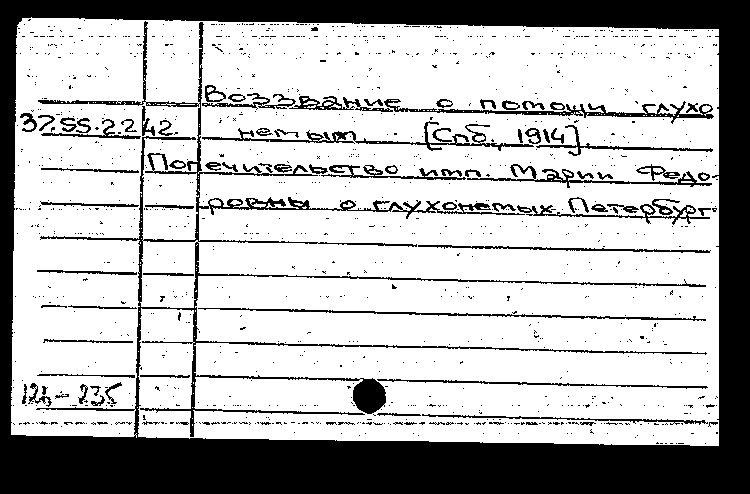 Воззвание о помощи глухо-
37.55.2.242. немым. [Спб., 1914].
Попечительство имп. Марии Федо-
ровны о глухонемых. Петербург.
12б – 235